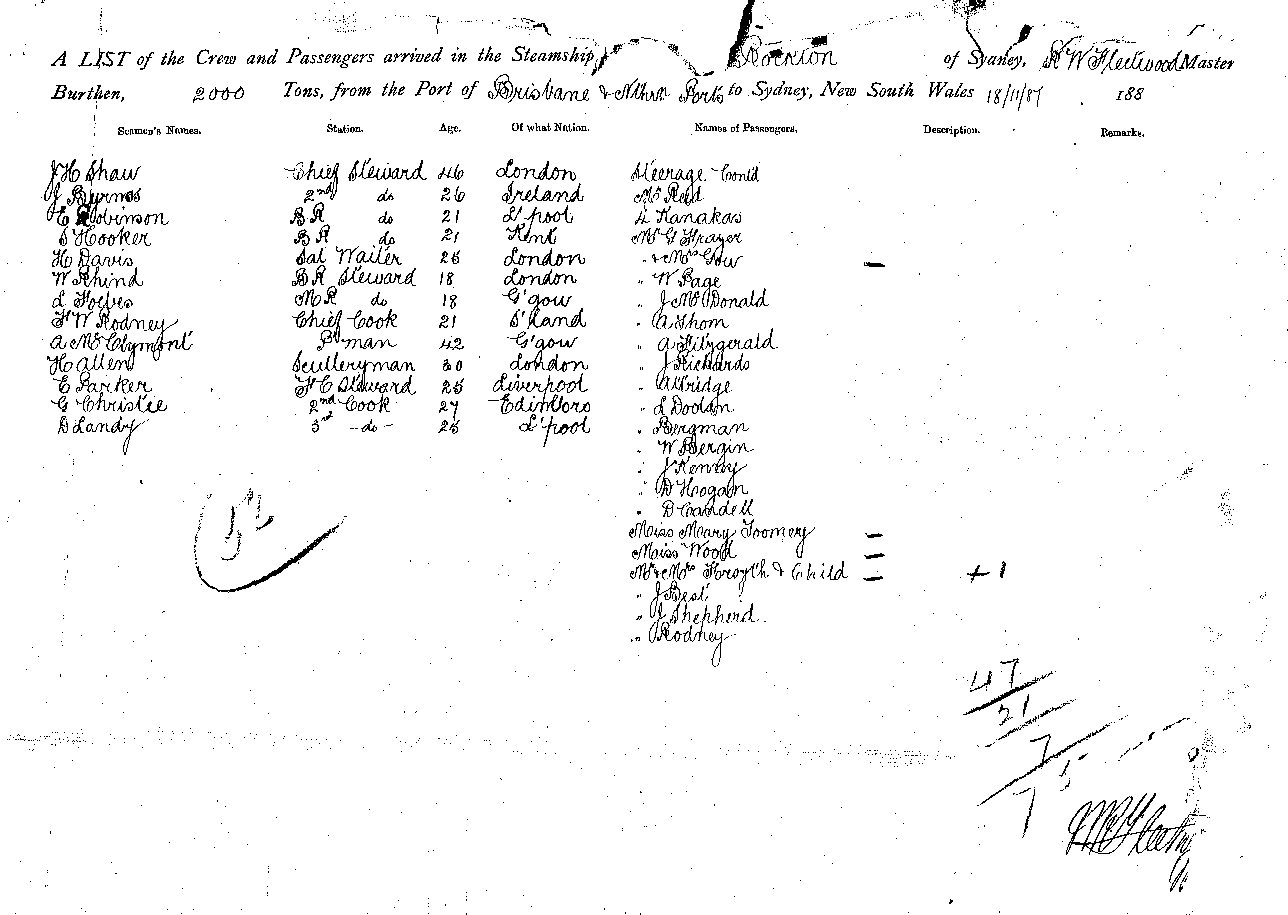 A LIST of the Crew and Passengers arrived in the Steamship, Rockton of Sydney, R W Fleetwood Master
Burthen, 2000 Tons, from the Port of Brisbane & Nthrn Ports to Sydney, New South Wales 18/11/87 188
Seamen's Names. Station. Age. Of what Nation. Names of Passengers. Description. Remarks.
J H Shaw Chief Steward 46 London Steerage Contd
J Burns 2nd do 26 Ireland Mr Reid
E Robinson BR do 21 L'pool 4 Kanakas
S Hooker BR do 21 Kent Mr G Frazer
H Davis Sal Waiter 25 London " & Mrs Gow —
W Rhind BR Steward 18 London " W Page
L Forbes MR do 18 G'gow " J McDonald
F W Rodney Chief Cook 21 S'land " A Thom
A McClymont Py man 42 G'gow " A Fitzgerald
H Allen Sculleryman 30 London " J Richards
E Parker F C Steward 25 Liverpool " A Bridge
G Christie 2nd Cook 27 Edinboro " L Dodds
D Landy 3rd - do - 25 L'pool " Bergman
" W Bergin
" J Kenny
" D Hogan
" D Candell
Miss Mary Toomey —
Miss Wood —
Mr & Mrs Forsyth & Child — + 1
" J Best
" J Shepherd
" Rodney
52
47
21
7
75